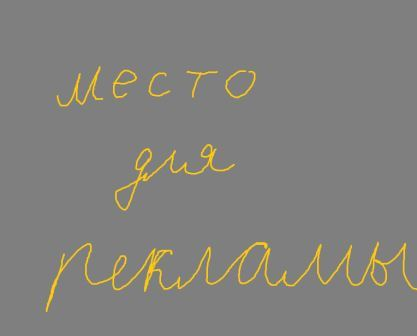 место
для
рекламы